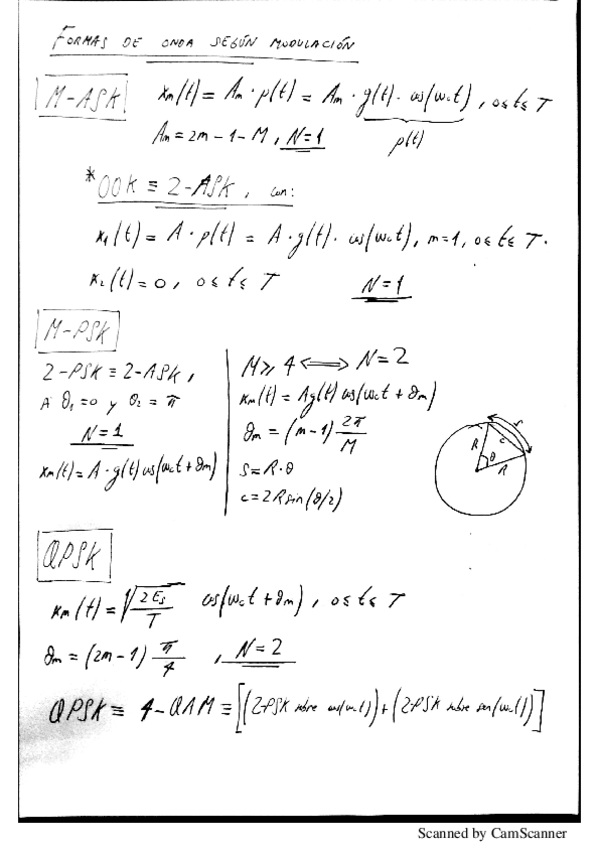 FORMAS DE ONDA SEGÚN MODULACIÓN
M-ASK
xₘ(t) = Aₘ · p(t) = Aₘ · g(t) · cos(ω_c t), 0≤t≤T
p(t)
Aₘ = 2m - 1 - M, N=1
*OOK ≡ 2-ASK, con:
x₁(t) = A · p(t) = A · g(t) · cos(ω_c t), m=1, 0≤t≤T.
x₂(t) = 0, 0≤t≤T N=1
M-PSK
2-PSK ≡ 2-ASK,
A θ₁=0 y θ₂=π
N=1
xₘ(t) = A · g(t) cos(ω_c t + θₘ)
M≥4 ⟺ N=2
xₘ(t) = A g(t) cos(ω_c t + θₘ)
θₘ = (m-1) 2π/M
S = R · θ
c = 2R sin(θ/2)
R θ R c S
QPSK
xₘ(t) = √(2E_s/T) cos(ω_c t + θₘ), 0≤t≤T
θₘ = (2m-1) π/4, N=2
QPSK ≡ 4-QAM ≡ [(2-PSK sobre cos(ω_c t)) + (2-PSK sobre sen(ω_c t))]
Scanned by CamScanner